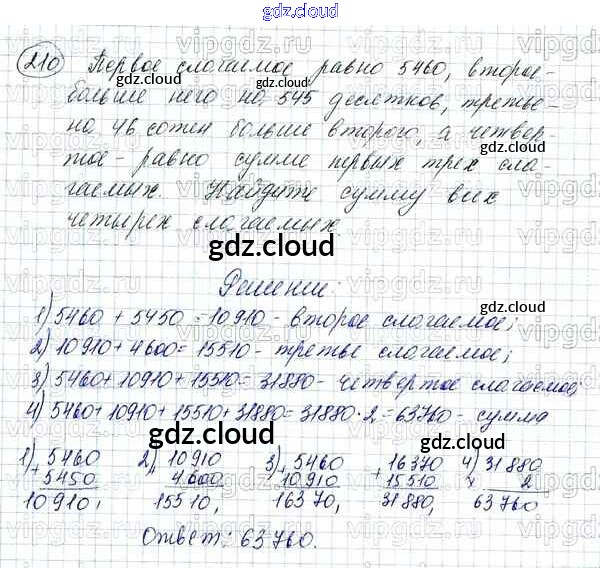 gdz.cloud
210 Первое слагаемое равно 5460, второе -
больше него на 545 десятков, третье -
на 46 сотен больше второго, а четвер-
тое - равно сумме первых трех сла-
гаемых. Найдите сумму всех
четырех слагаемых.
Решение:
1) 5460 + 5450 = 10910 - второе слагаемое;
2) 10910 + 4600 = 15510 - третье слагаемое;
3) 5460 + 10910 + 15510 = 31880 - четвертое слагаемое;
4) 5460 + 10910 + 15510 + 31880 = 31880 · 2 = 63760 - сумма
1) + 5460 2) + 10910 3) + 5460 + 16370 4) × 31880
5450 4600 10910 15510 2
10910, 15510, 16370, 31880, 63760
Ответ: 63760.
gdz.cloud
gdz.cloud
gdz.cloud
gdz.cloud
gdz.cloud
gdz.cloud
gdz.cloud
gdz.cloud
gdz.cloud
gdz.cloud
vipgdz.ru